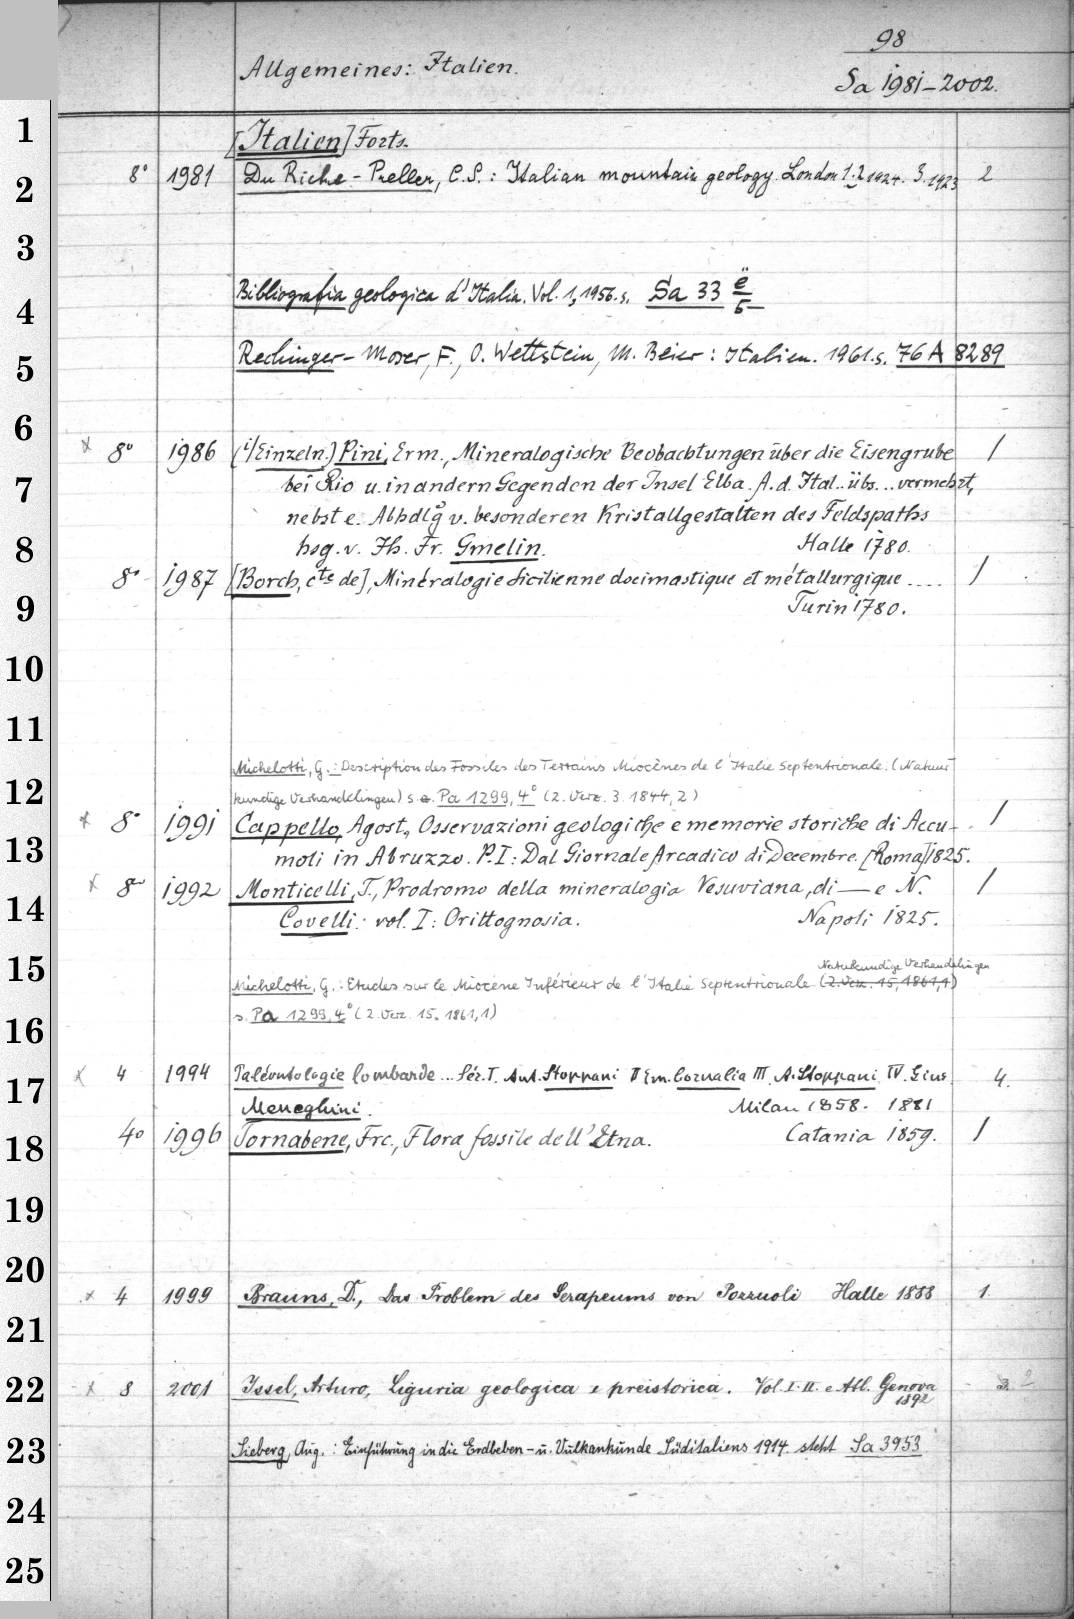 98
Allgemeines: Italien.
Sa 1981-2002.
1
[Italien] Forts.
2
8° 1981 Du Riche-Preller, C.S.: Italian mountain geology. London 1.2 1924. 3. 1923 2
3
4
Bibliografia geologica d'Italia. Vol. 1, 1956. s. Sa 33 ë/5
5
Rechinger-Moser, F., O. Wettstein, M. Beier: Italien. 1961. s. 76 A 8289
6
x 8° 1986 (i/Einzeln.) Pini, Erm., Mineralogische Beobachtungen über die Eisengrube 1
7
bei Rio u. in andern Gegenden der Insel Elba. A. d. Ital.. übs... vermehrt,
nebst e. Abhdlg v. besonderen Kristallgestalten des Feldspaths
8
hsg. v. Jh. Fr. Gmelin. Halle 1780.
8° 1987 [Borch, cte de], Minéralogie sicilienne docimastique et métallurgique .... 1
9
Turin 1780.
10
11
Michelotti, G.: Description des Fossiles des Terrains Miocènes de l'Italie septentrionale. (Natuur-
12
kundige Verhandelingen) s. Pa 1299, 4° (2. Verz. 3. 1844, 2)
x 8° 1991 Cappello, Agost., Osservazioni geologiche e memorie storiche di Accu- 1
13
moli in Abruzzo. P. I: Dal Giornale Arcadico di Decembre. [Roma] 1825.
x 8° 1992 Monticelli, T., Prodromo della mineralogia Vesuviana, di — e N. 1
14
Covelli: vol. I: Orittognosia. Napoli 1825.
15
Natuurkundige Verhandelingen
Michelotti, G.: Etudes sur le Miocène Inférieur de l'Italie septentrionale (2. Verz. 15, 1861, 1)
16
s. Pa 1299, 4° (2. Verz. 15. 1861, 1)
17
x 4 1994 Paléontologie lombarde ... Sér. I. Ant. Stoppani II Em. Cornalia III A. Stoppani IV. Gius 4.
Meneghini. Milan 1858. 1881
18
4° 1996 Tornabene, Frc., Flora fossile dell' Etna. Catania 1859. 1
19
20
x 4 1999 Brauns, D., Das Problem des Serapeums von Pozzuoli Halle 1888 1
21
22
x 8 2001 Issel, Arturo, Liguria geologica e preistorica. Vol. I. II. e Atl. Genova 1892 2
23
Sieberg, Aug.: Einführung in die Erdbeben- u. Vulkankunde Süditaliens 1914. steht Sa 3953
24
25